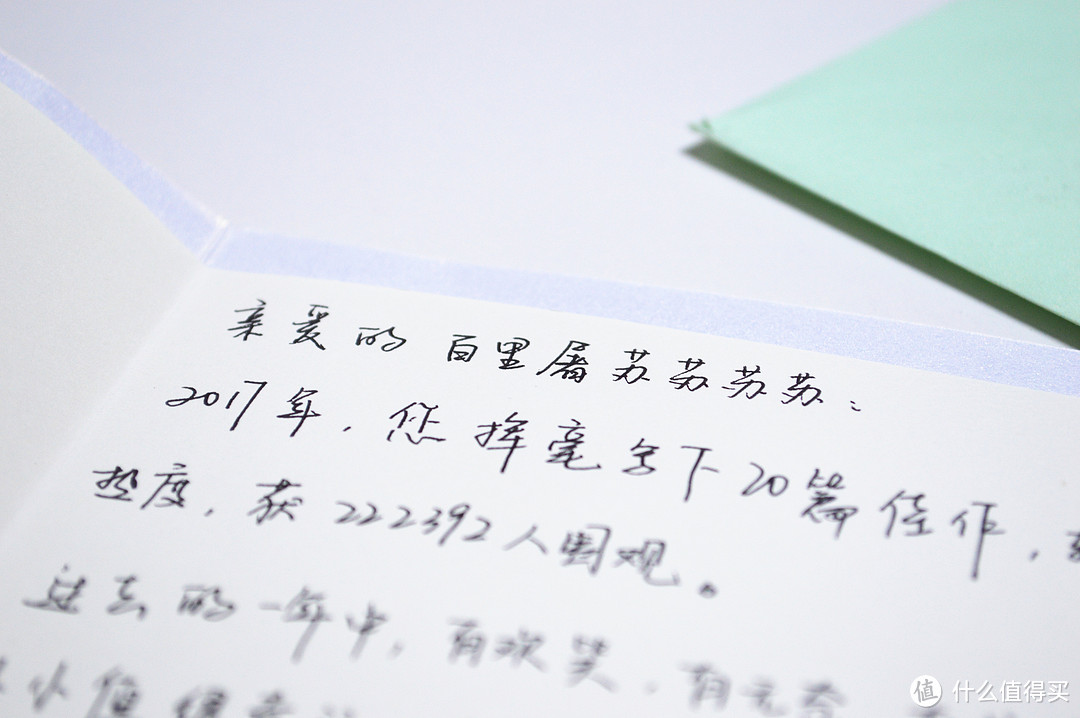 亲爱的 百里屠苏苏苏苏：
2017年，您挥毫写下20篇佳作，
热度，获222392人围观。
过去的一年中，有欢笑，有无奈
小值
值 什么值得买